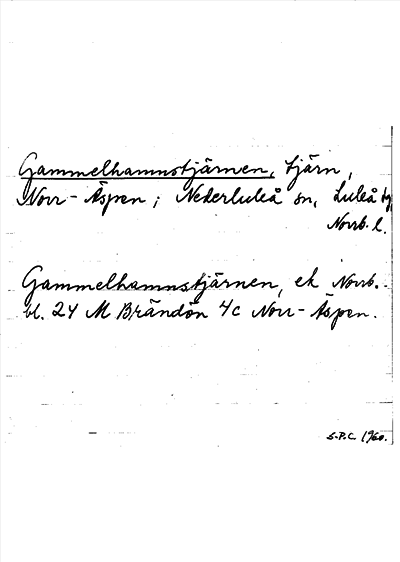 Gammelhamnstjärnen, tjärn,
Norr-Äspen; Nederluleå sn, Luleå tg,
Norrb. l.
Gammelhamnstjärnen, ek Norrb.
bl. 24 M Brändön 4c Norr-Äspen.
S.P.C. 1960.